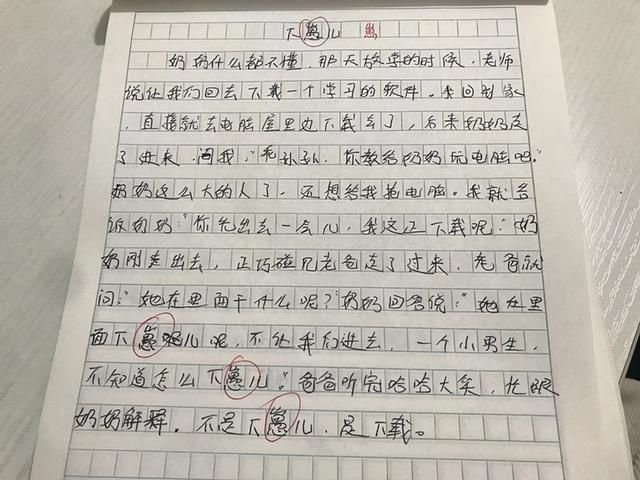 下崽儿 崽
奶奶什么都不懂，那天放学的时候，老师
说让我们回去下载一个学习的软件。我回到家
，直接就去电脑屋里边下载去了，后来奶奶走
了进来，问我：“乖孙孙，你教给奶奶玩电脑吧。”
奶奶这么大的人了，还想给我抢电脑。我就告
诉奶奶：“你先出去一会儿，我这正下载呢。”奶
奶刚走出去，正巧碰见老爸走了过来，老爸就
问：“她在里面干什么呢？”奶奶回答说：“她在里
面下崽呢儿呢，不让我们进去，一个小男生，
不知道怎么下崽儿。”爸爸听完哈哈大笑，忙跟
奶奶解释，不是下崽儿，是下载。